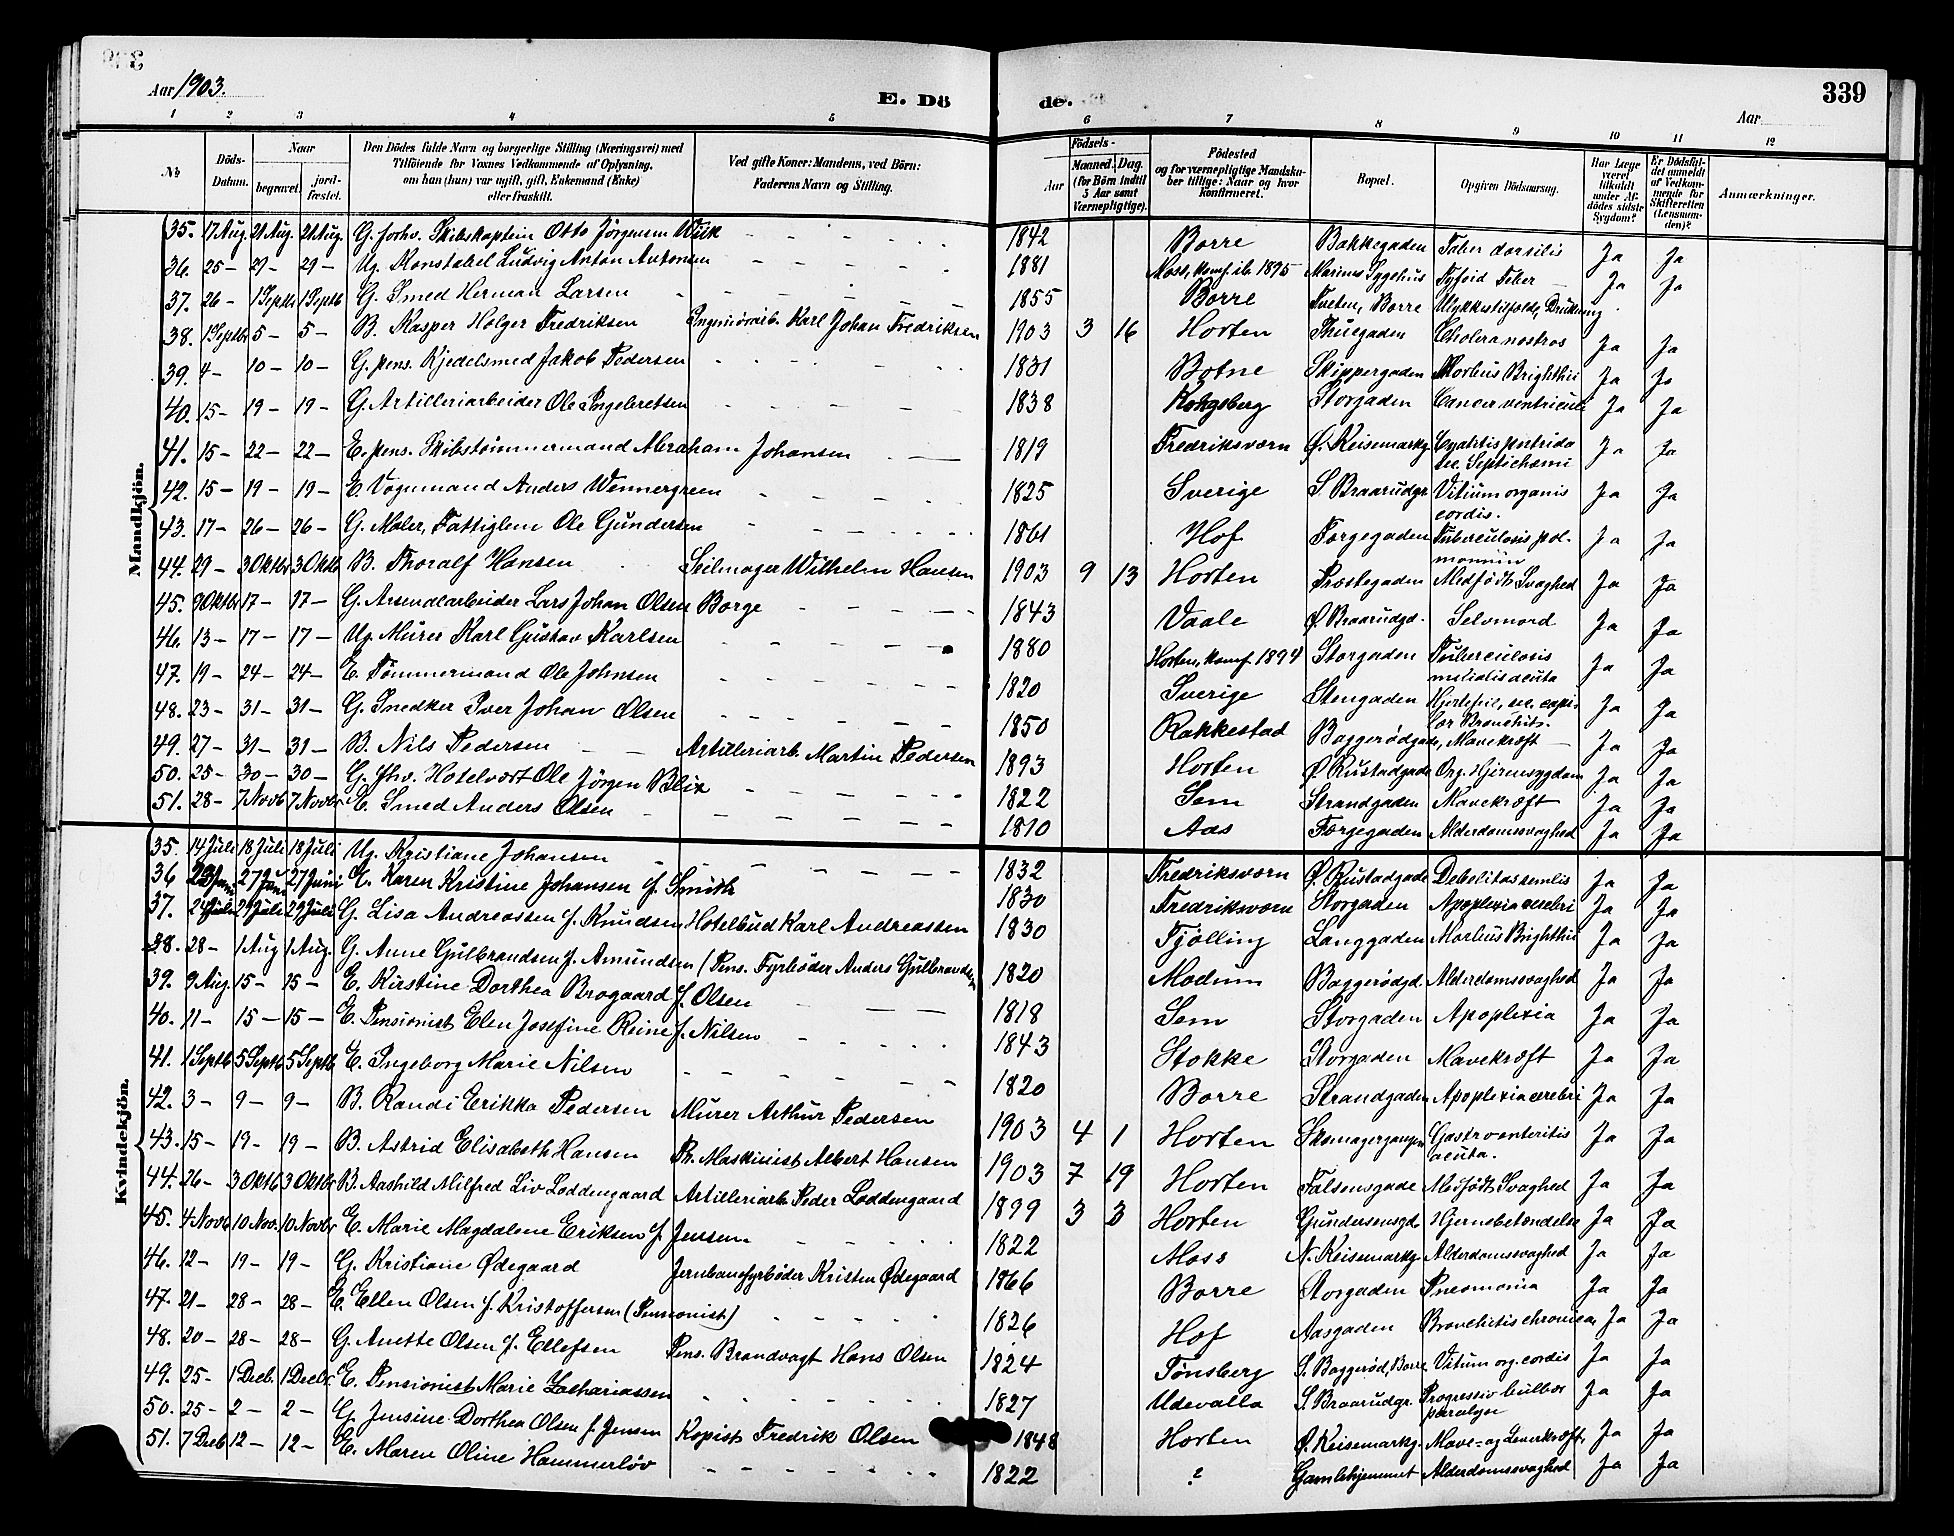 Aar 1903.
E. Dö
de.
339
Aar
1 2 3 4 5 6 7 8 9 10 11 12
No
Döds-Datum.
Naar begravet. jordfæstet.
Den Dödes fulde Navn og borgerlige Stilling (Næringsvei) med Tilföiende for Voxnes Vedkommende af Oplysning, om han (hun) var ugift, gift, Enkemand (Enke) eller fraskilt.
Ved gifte Koner: Mandens, ved Börn: Faderens Navn og Stilling.
Födsels-
Aar Maaned. Dag. (for Börn indtil 5 Aar samt Værnepligtige).
Födested og for værnepligtige Mandskaber tillige: Naar og hvor konfirmeret.
Bopæl.
Opgiven Dödsaarsag.
Har Læge været tilkaldt under Afdödes sidste Sygdom?
Er Dödsfaldet anmeldt af Vedkommende for Skifteretten (Lensmanden)?
Anmærkninger.
Mandkjön.
35. 17 Aug. 21 Aug. 21 Aug. G. forhv. Skibskaptein Otto Jörgensen Wiik 1842 Borre Bakkegaden Taber dorsilis Ja Ja
36. 25 – 29 – 29 – Ug. Konstabel Ludvig Anton Antonsen 1881 Moss, konf. ib. 1895 Marinens Sygehus Tyfoid Feber Ja Ja
37. 26 – 1 Septbr 1 Septb G. Smed Herman Larsen 1855 Borre Tveten, Borre Ulykkestilfælde, Drukning
38. 1 Septbr 5 – 5 – B. Kasper Holger Fredriksen Ingeniørarb. Karl Johan Fredriksen 1903 3 16 Horten Thuegaden Cholera nostras Ja Ja
39. 4 – 10 – 10 – G. pens. Kjedelsmed Jakob Pedersen 1831 Botne Skippergaden Morbus Brighthii Ja Ja
40. 15 – 19 – 19 – G. Artilleriarbeider Ole Ingebretsen 1838 Kongsberg Storgaden Cancer ventriculi Ja Ja
41. 15 – 22 – 22 – E. pens. Skibstømmermand Abraham Johansen 1819 Fredriksværn Ø. Keisemarkg. Cystitis putrida sec. Septichæmi Ja Ja
42. 15 – 19 – 19 – E. Vognmand Anders Wennergreen 1825 Sverige S. Braarudgr. Vitium organis cordis. Ja Ja
43. 17 – 26 – 26 – G. Maler, Fattiglem Ole Gundersen 1861 Hof Færgegaden Tuberculosis pulmonum Ja Ja
44. 29 – 3 Oktbr 3 Oktb B. Thoralf Hansen Seilmager Wilhelm Hansen 1903 9 13 Horten Præstegaden Medfødt Svaghed Ja Ja
45. 9 Oktbr 17 – 17 – G. Arsenalarbeider Lars Johan Olsen Borge 1843 Vaale Ø. Braarudgd. Selvmord Ja Ja
46. 13 – 17 – 17 – Ug. Murer Karl Gustav Karlsen 1880 Horten, konf. 1894 Storgaden Tuberculosis miliaris acuta Ja Ja
47. 19 – 24 – 24 – E. Tømmermand Ole Johnsen 1820 Sverige Stengaden Hjertefeil, sec. capillær Bronchit. Ja Ja
48. 23 – 31 – 31 – G. Snedker Iver Johan Olsen 1850 Rakkestad Baggerødgade, Mavekræft Ja Ja
49. 27 – 31 – 31 – B. Nils Pedersen Artilleriarb. Martin Pedersen 1893 Horten Ø. Rustadgade Org. Hjernesygdom Ja Ja
50. 25 – 30 – 30 – G. fhv. Hotelvært Ole Jörgen Blix 1822 Sem Strandgaden Mavekræft Ja Ja
51. 28 – 7 Novb 7 Novbr E. Smed Anders Olsen 1810 Aas Færgegaden Alderdomssvaghed Ja Ja
Kvindekjön.
35. 14 Juli 18 Juli 18 Juli Ug. Kristiane Johansen 1832 Fredriksværn Ø. Rustadgade Debilitas senilis Ja Ja
36 23 Juni 27 Juni 27 Juni E. Karen Kristine Johansen f. Smith 1830 Fredriksværn Storgaden Apoplexia cerebri Ja Ja
37. 24 Juli 29 Juli 29 Juli G. Lisa Andreassen f. Knudsen Hotelbud Karl Andreassen 1830 Tjølling Langgaden Morbus Brighthii Ja Ja
38. 28 – 1 Aug 1 Aug. G. Anne Gulbrandsen f. Amundsen (Pens. Fyrbøder Anders Gulbrandsen 1820 Modum Baggerødgd. Alderdomssvaghed Ja Ja
39. 9 Aug. 15 – 15 – E. Kirstine Dorthea Brogaard f. Olsen 1818 Sem Storgaden Apoplexia Ja Ja
40. 11 – 15 – 15 – E. Pensionist Elen Josefine Reine f. Nilsen 1843 Stokke Storgaden Mavekræft Ja Ja
41. 1 Septb 5 Septb 5 Septb E. Ingeborg Marie Nilsen 1820 Borre Strandgaden Apoplexia cerebri Ja Ja
42. 3 – 9 – 9 – B. Randi Erikka Pedersen Murer Arthur Pedersen 1903 4 1 Horten Skomagergangen Gastroenteritis acuta. Ja Ja
43. 15 – 19 – 19 – B. Astrid Elisabeth Hansen Pr. Maskinist Albert Hansen 1903 7 19 Horten Falsensgade Medfødt Svaghed Ja Ja
44. 26 – 3 Oktb 3 Oktbr B. Aashild Milfred Liv Loddengaard Artilleriarb. Peder Loddengaard 1899 3 3 Horten Gundersensgd. Hjernebetændelse Ja Ja
45. 4 Novb 10 Nov. 10 Novbr E. Marie Magdalene Eriksen f. Jensen 1822 Moss N. Keisemarkg. Alderdomssvaghed Ja Ja
46. 12 – 19 – 19 – G. Kristiane Ødegaard Jernbanefyrbøder Kristen Ødegaard 1866 Borre Storgaden Pneumonia Ja Ja
47. 21 – 28 – 28 – E. Ellen Olsen f. Kristoffersen (Pensionist) 1826 Hof Aasgaden Bronchitis chronica Ja Ja
48. 20 – 28 – 28 – G. Anette Olsen f. Ellefsen Pens. Brandvagt Hans Olsen 1824 Tønsberg S. Baggerød, Borre Vitium org. cordis Ja Ja
49. 25 – 1 Decb. 1 Decbr. E. Pensionist Marie Zachariassen 1827 Udevalla S. Braarudgr. Progressiv bulbær paralyse Ja Ja
50. 25 – 2 – 2 – G. Jensine Dorthea Olsen f. Jensen Kopist Fredrik Olsen 1848 Horten Ø. Keisemarkg. Mave- og Leverkræft Ja Ja
51. 7 Decb 12 – 12 – E. Maren Oline Hammerløv 1822 ? Gamlehjemmet Alderdomssvaghed Ja Ja